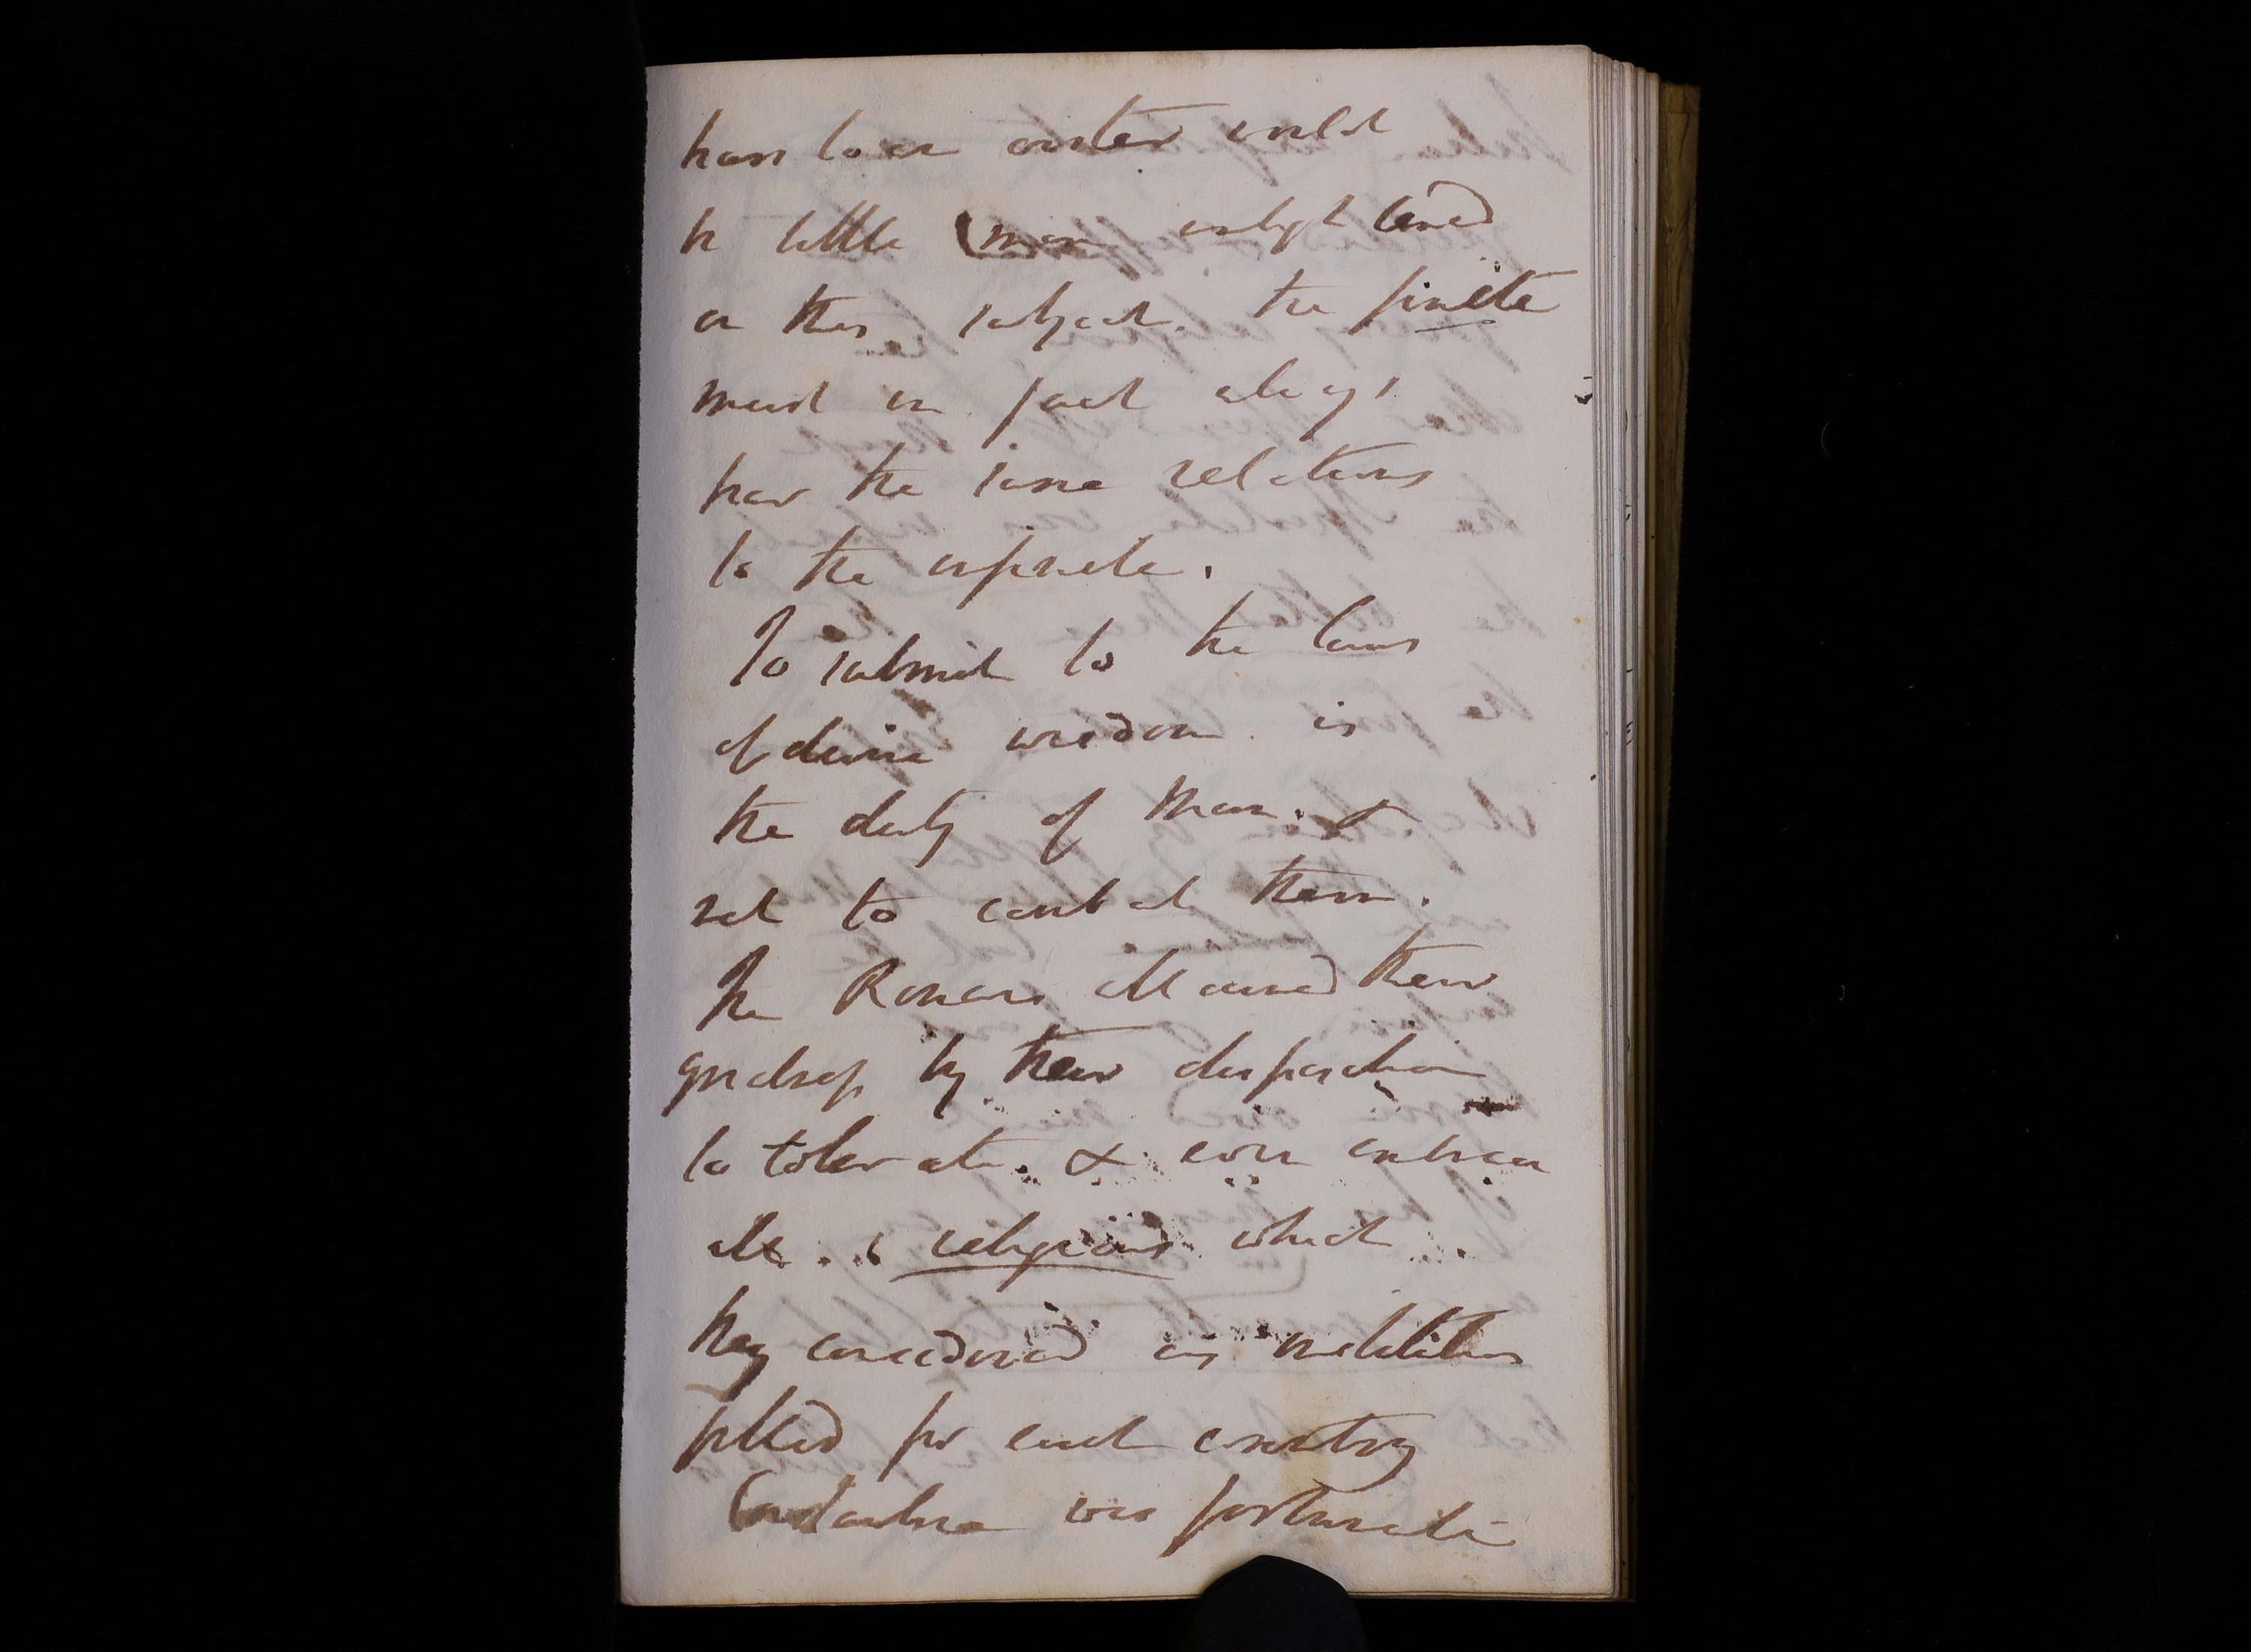 than to an oister would
be little more enlightened
on this subject. the finite
must in fact always
bear the same relations
to the infinite.
To submit to the laws
of divine wisdom is
the duty of Man. &
not to combat them.
The Romans attained their
by their disposition
to tolerate. & even embrace
all religions which
they considered as institutions
fitted for each country
was fortunate